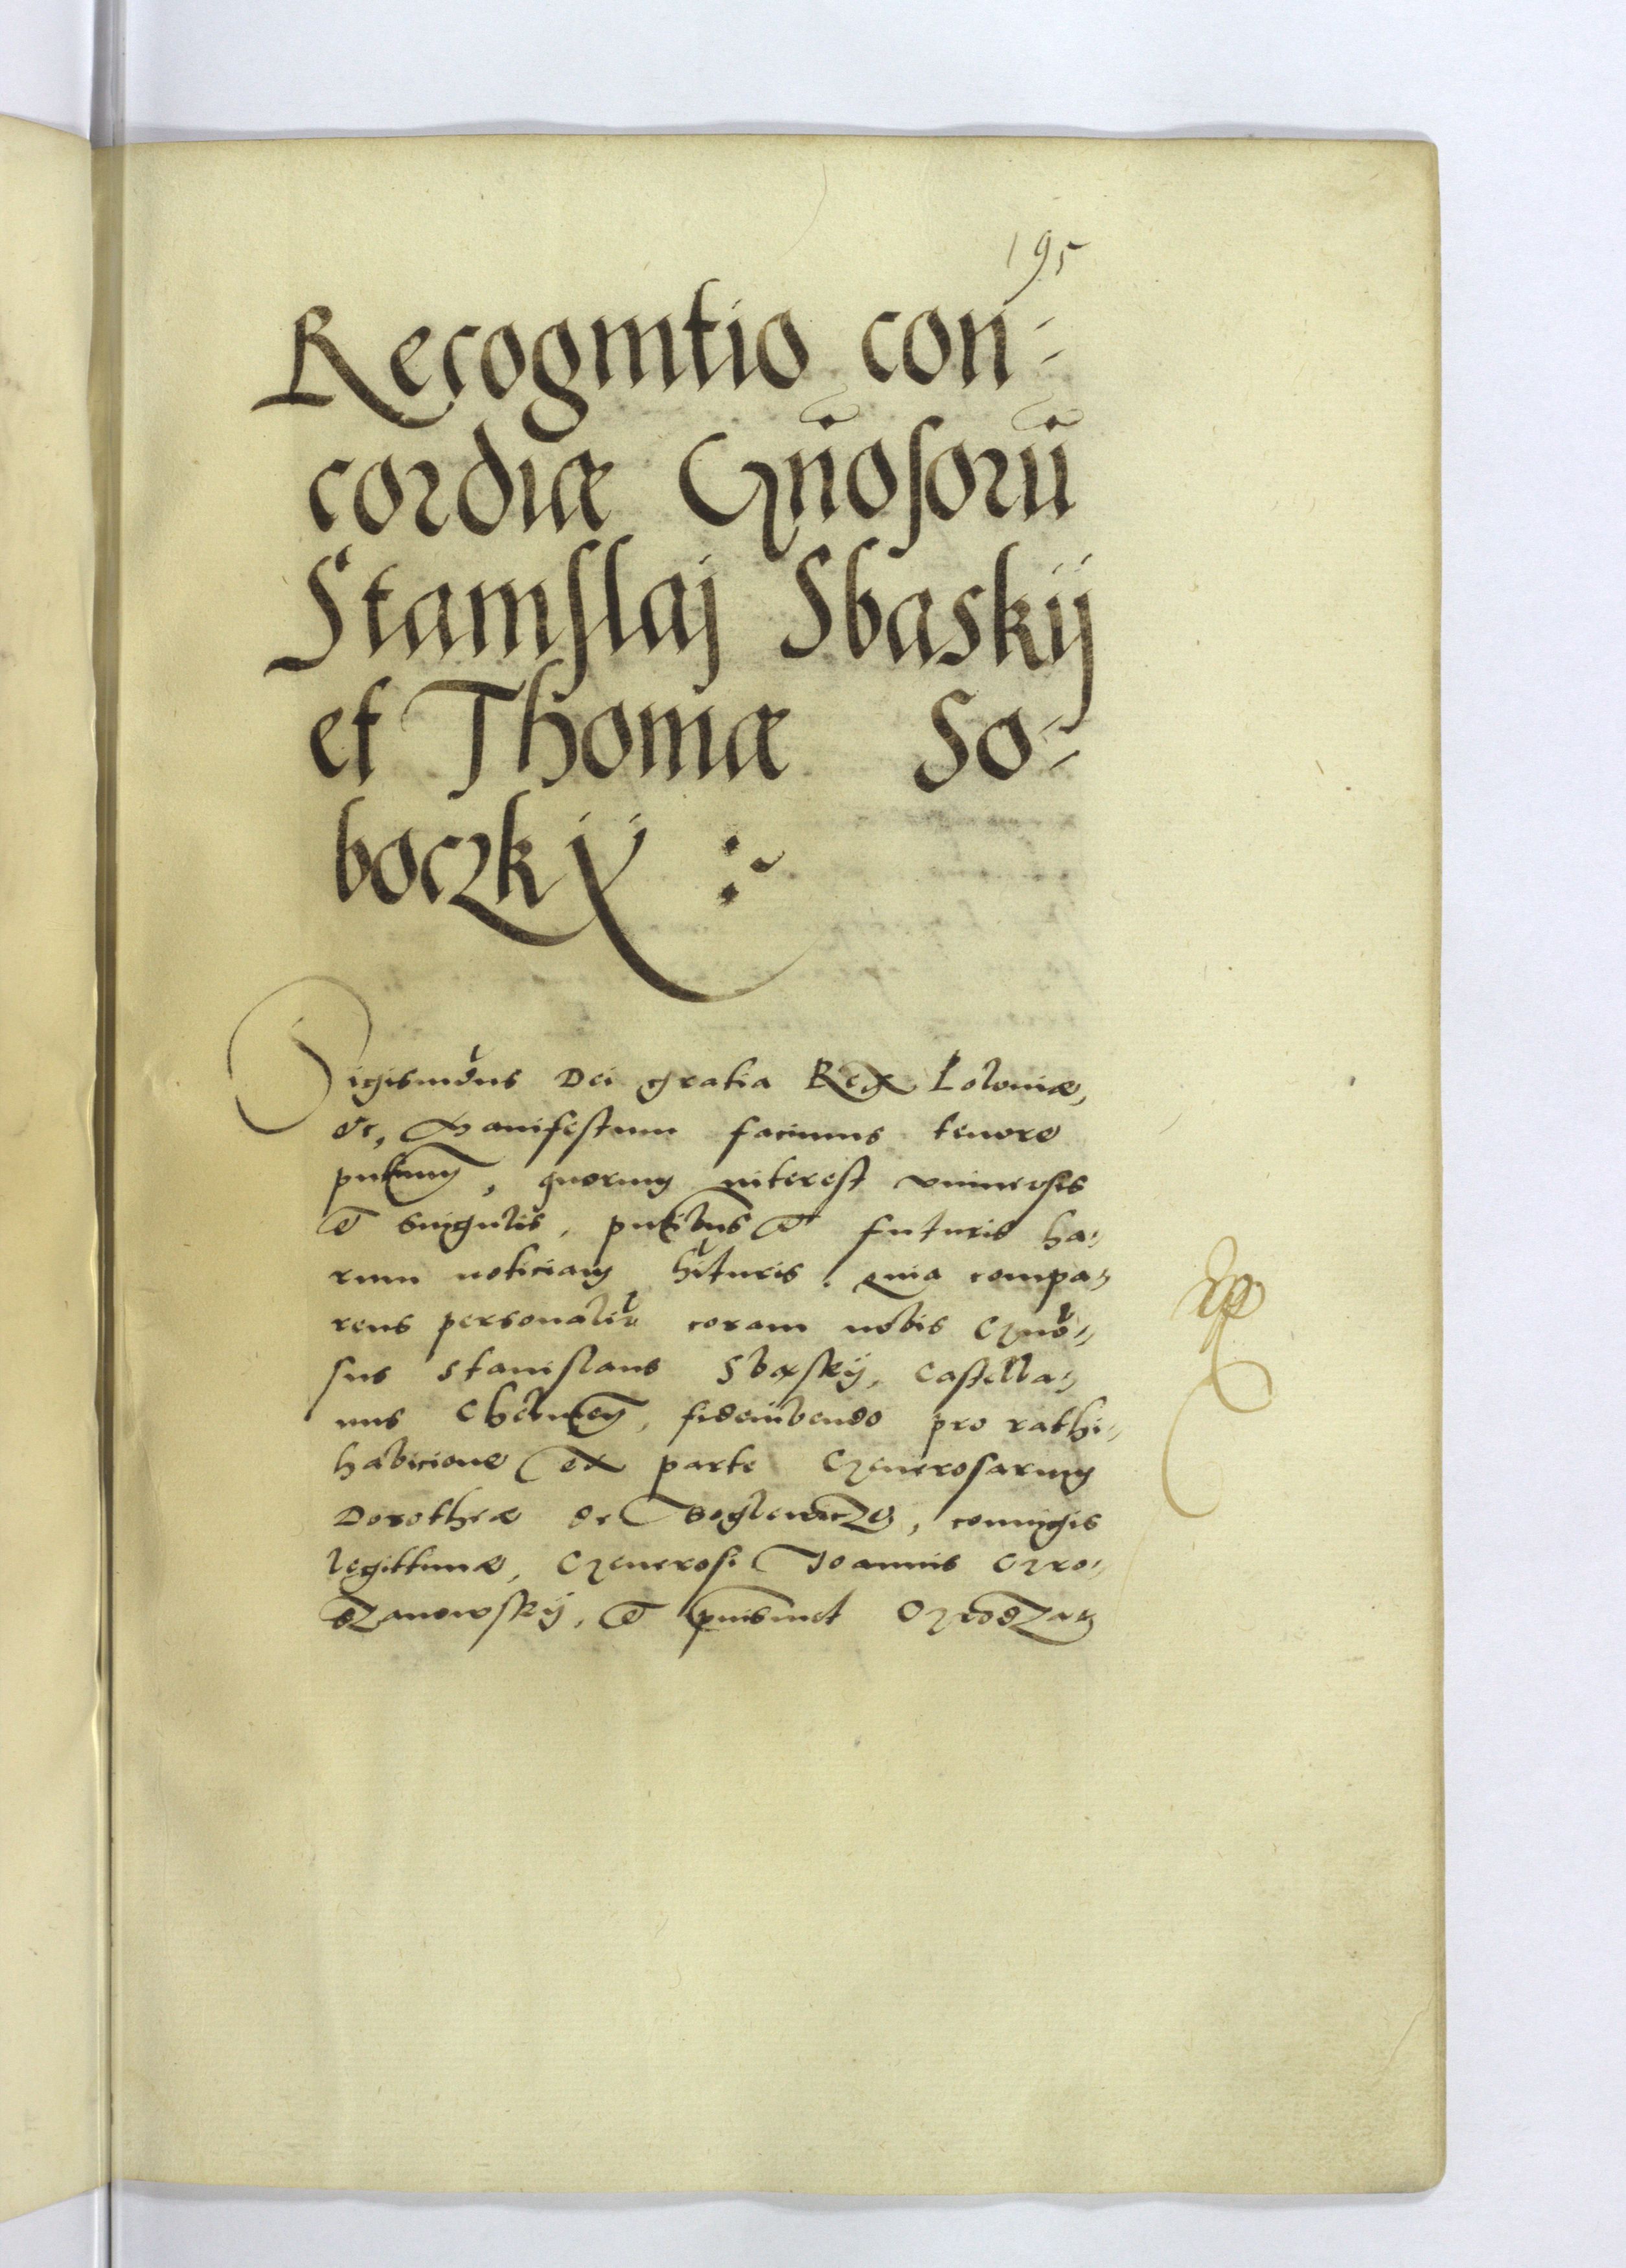 195
Recognitio con-
cordiæ Gñosorũ
Stanislaj Sbaskij
et Thomæ So-
boczkij :~
Sigismũdus Dei gratia Rex Poloniæ,
etc, Manifestum facimus tenore
pntium, quorum interest vniuersis
et singulis, pntibus et futuris ha-
rum noticiam hituris. Quia compa-
rens personalit coram nobis Gnõ-
sus Stanislaus Sbąskij, Castella-
nus Chelmen, fideiubendo pro rathi-
habicione ex parte Generosarum
Dorotheæ de coniugis
legittimæ, Generosi Joannis Gro-
dzanowskij, et Grodza-